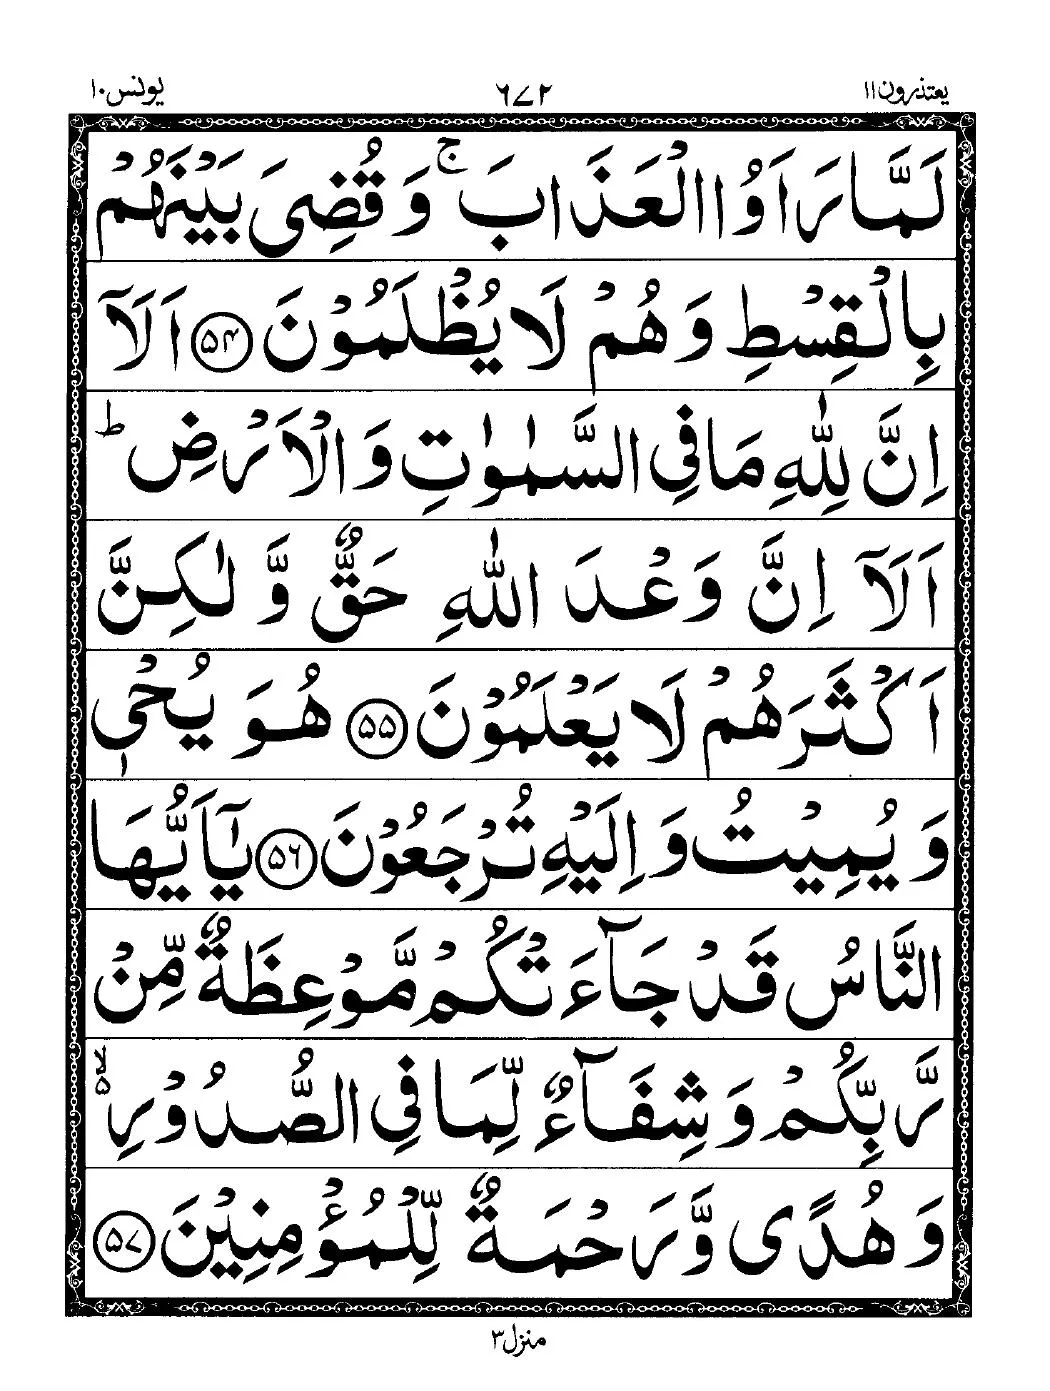 یعتذرون۱۱
۶۷۲
یونس۱۰
لَمَّا رَاَوُا الْعَذَابَ ۚ وَ قُضِیَ بَیْنَهُمْ
بِالْقِسْطِ وَ هُمْ لَا یُظْلَمُوْنَ ۝۵۴ اَلَاۤ
اِنَّ لِلّٰهِ مَا فِی السَّمٰوٰتِ وَ الْاَرْضِ ؕ
اَلَاۤ اِنَّ وَعْدَ اللّٰهِ حَقٌّ وَّ لٰكِنَّ
اَكْثَرَهُمْ لَا یَعْلَمُوْنَ ۝۵۵ هُوَ یُحْیٖ
وَ یُمِیْتُ وَ اِلَیْهِ تُرْجَعُوْنَ ۝۵۶ یٰۤاَیُّهَا
النَّاسُ قَدْ جَآءَتْكُمْ مَّوْعِظَةٌ مِّنْ
رَّبِّكُمْ وَ شِفَآءٌ لِّمَا فِی الصُّدُوْرِ ۙ۵
وَ هُدًی وَّ رَحْمَةٌ لِّلْمُؤْمِنِیْنَ ۝۵۷
منزل۳